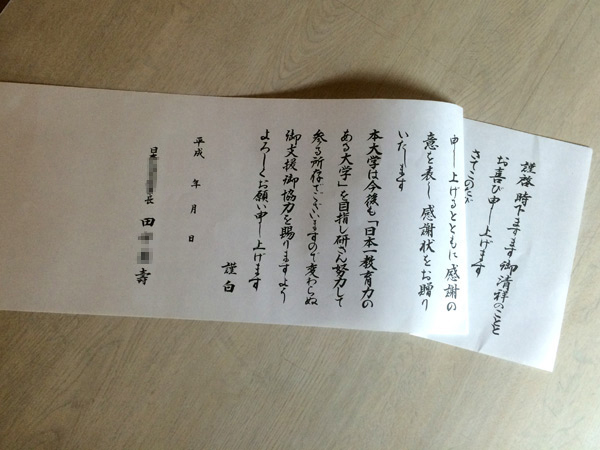 謹啓 時下ますます御清祥のことと
お喜び申し上げます
さてこのたび
申し上げるとともに感謝の
意を表し感謝状をお贈り
いたします
本大学は今後も「日本一教育力の
ある大学」を目指し研さん努力して
参る所存でございますので変わらぬ
御支援御協力を賜りますよう
よろしくお願い申し上げます
謹白
平成 年 月 日
長 田 寿